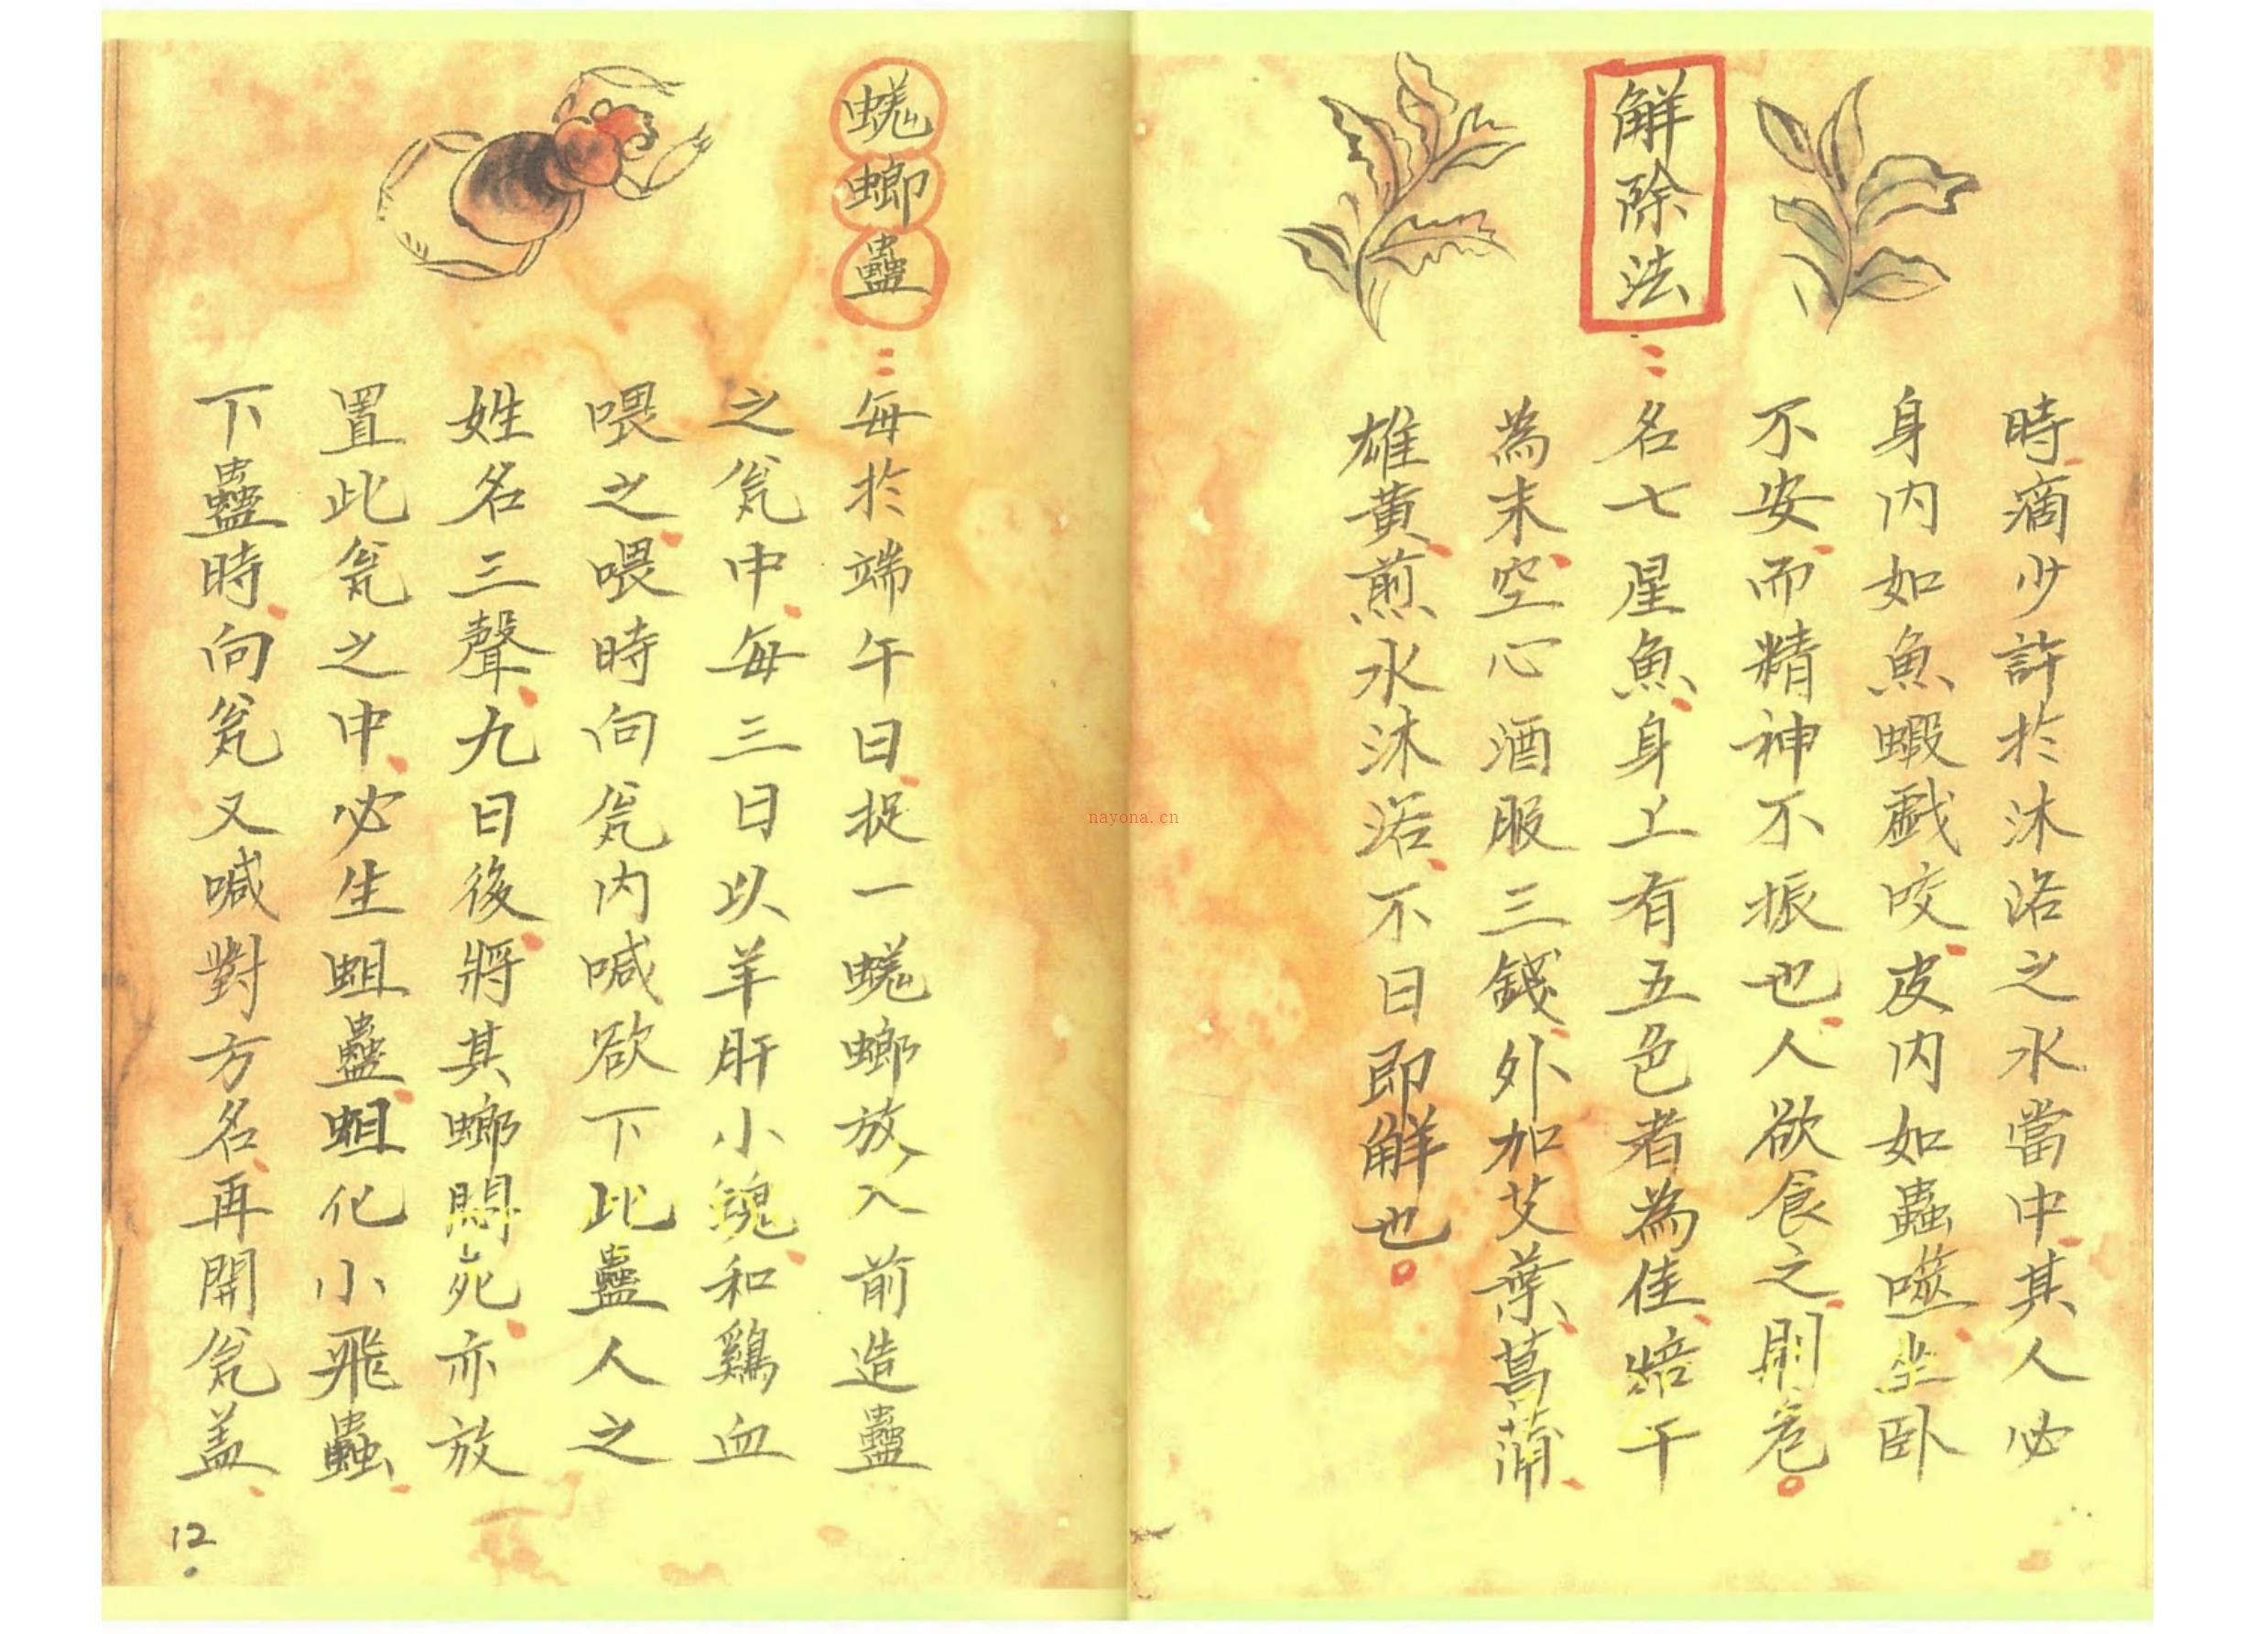 時滴少許於沐浴之水當中其人必
身内如魚蝦戲咬皮内如蟲噬坐卧
不安而精神不振也人欲食之則危
解除法
名七星魚身上有五色者為佳焙干
為末空心酒服三錢外加艾葉菖蒲
雄黃煎水沐浴不日即解也
蜣螂蠱
每於端午日捉一蜣螂放入前造蠱
之瓮中每三日以羊肝小塊和鷄血
喂之喂時向瓮内喊欲下此蠱人之
姓名三聲九日後將其螂悶死亦放
置此瓮之中必生蛆蠱蛆化小飛蟲
下蠱時向瓮又喊對方名再開瓮盖
12
nayona.cn